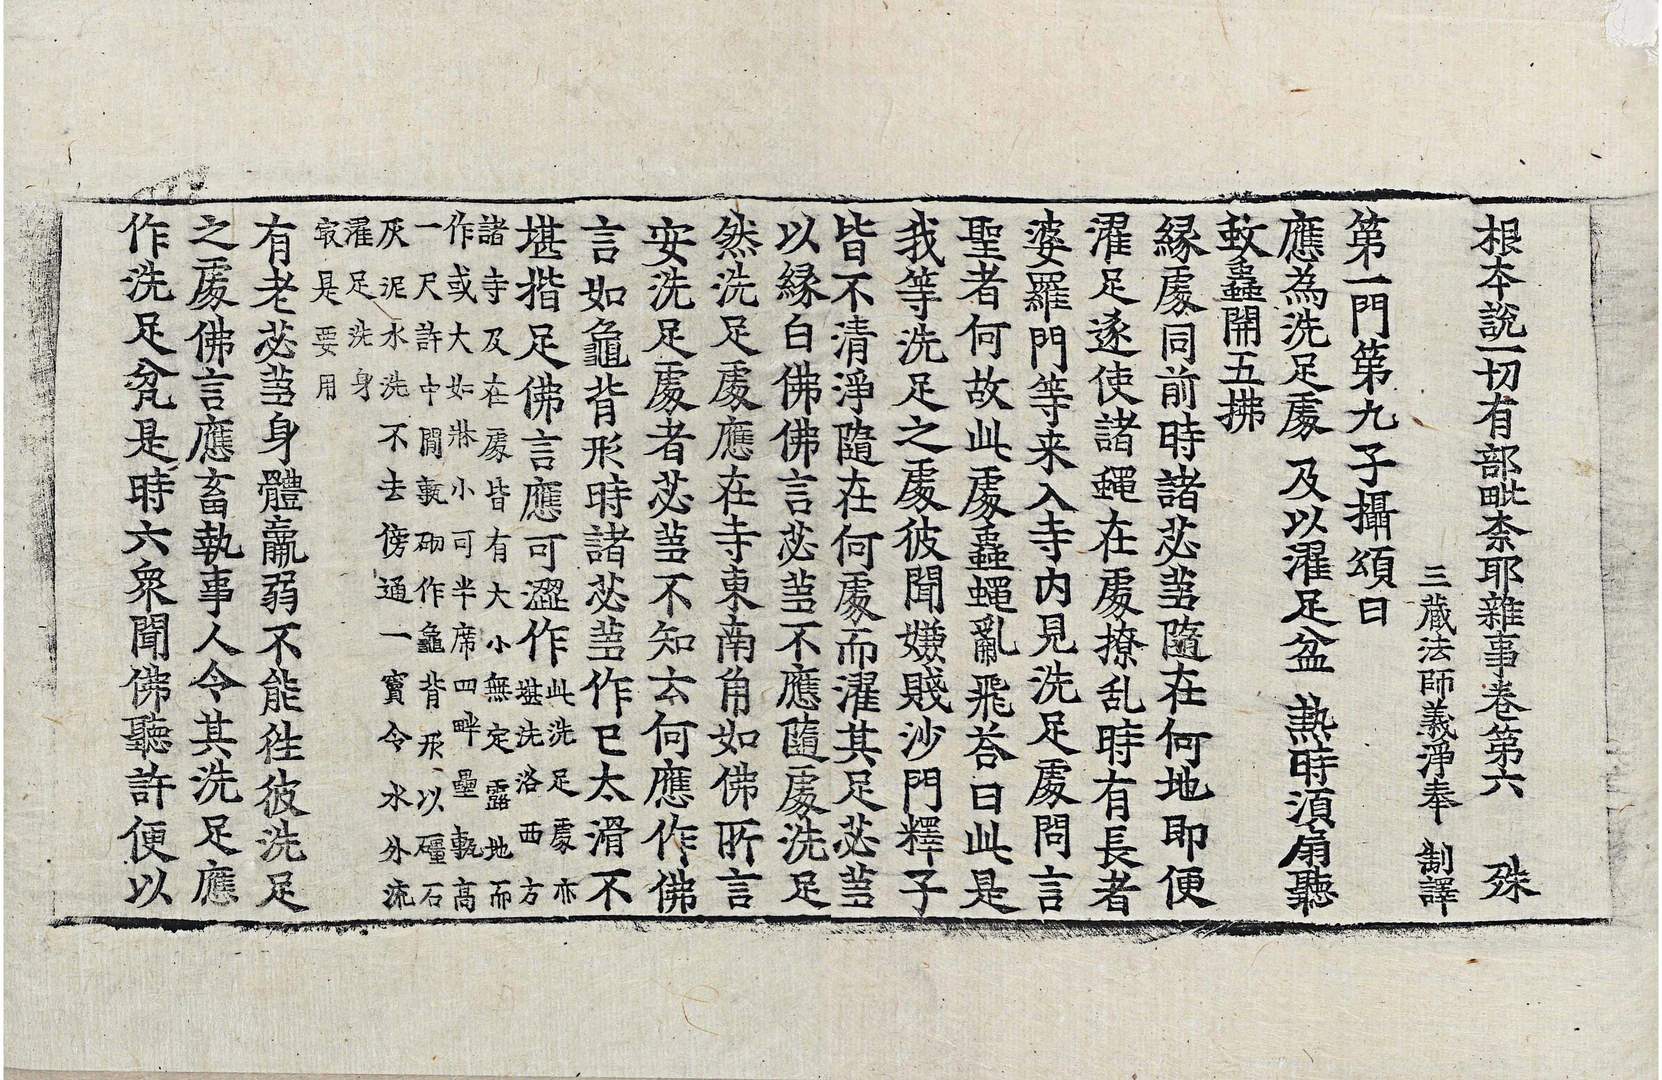 根本說一切有部毗柰耶雜事卷第六 殊
三藏法師義淨奉 制譯
第一門第九子攝頌曰
應為洗足處 及以濯足盆 熱時須扇聽
蚊蟲開五拂
緣處同前時諸苾芻隨在何地即便
濯足遂使諸蠅在處撩乱時有長者
婆羅門等来入寺内見洗足處問言
聖者何故此處蟲蠅亂飛荅曰此是
我等洗足之處彼聞嫌賤沙門釋子
皆不清淨隨在何處而濯其足苾芻
以緣白佛佛言苾芻不應隨處洗足
然洗足處應在寺東南角如佛所言
安洗足處者苾芻不知云何應作佛
言如龜背形時諸苾芻作已太滑不
堪揩足佛言應可澀作此洗足處亦
堪洗洛西方
諸寺及在處皆有大小無定露地而
作或大如牀小可半席四畔壘甎高
一尺許中間甎砌作龜背形以礓石
灰泥水洗不去傍通一竇令水外流
濯足洗身
最是要用
有老苾芻身體羸弱不能往彼洗足
之處佛言應畜執事人令其洗足應
作洗足瓫是時六衆聞佛聽許便以